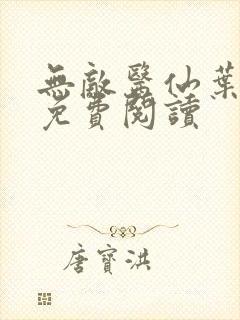 無敵醫仙葉
免費閱讀
唐寶洪